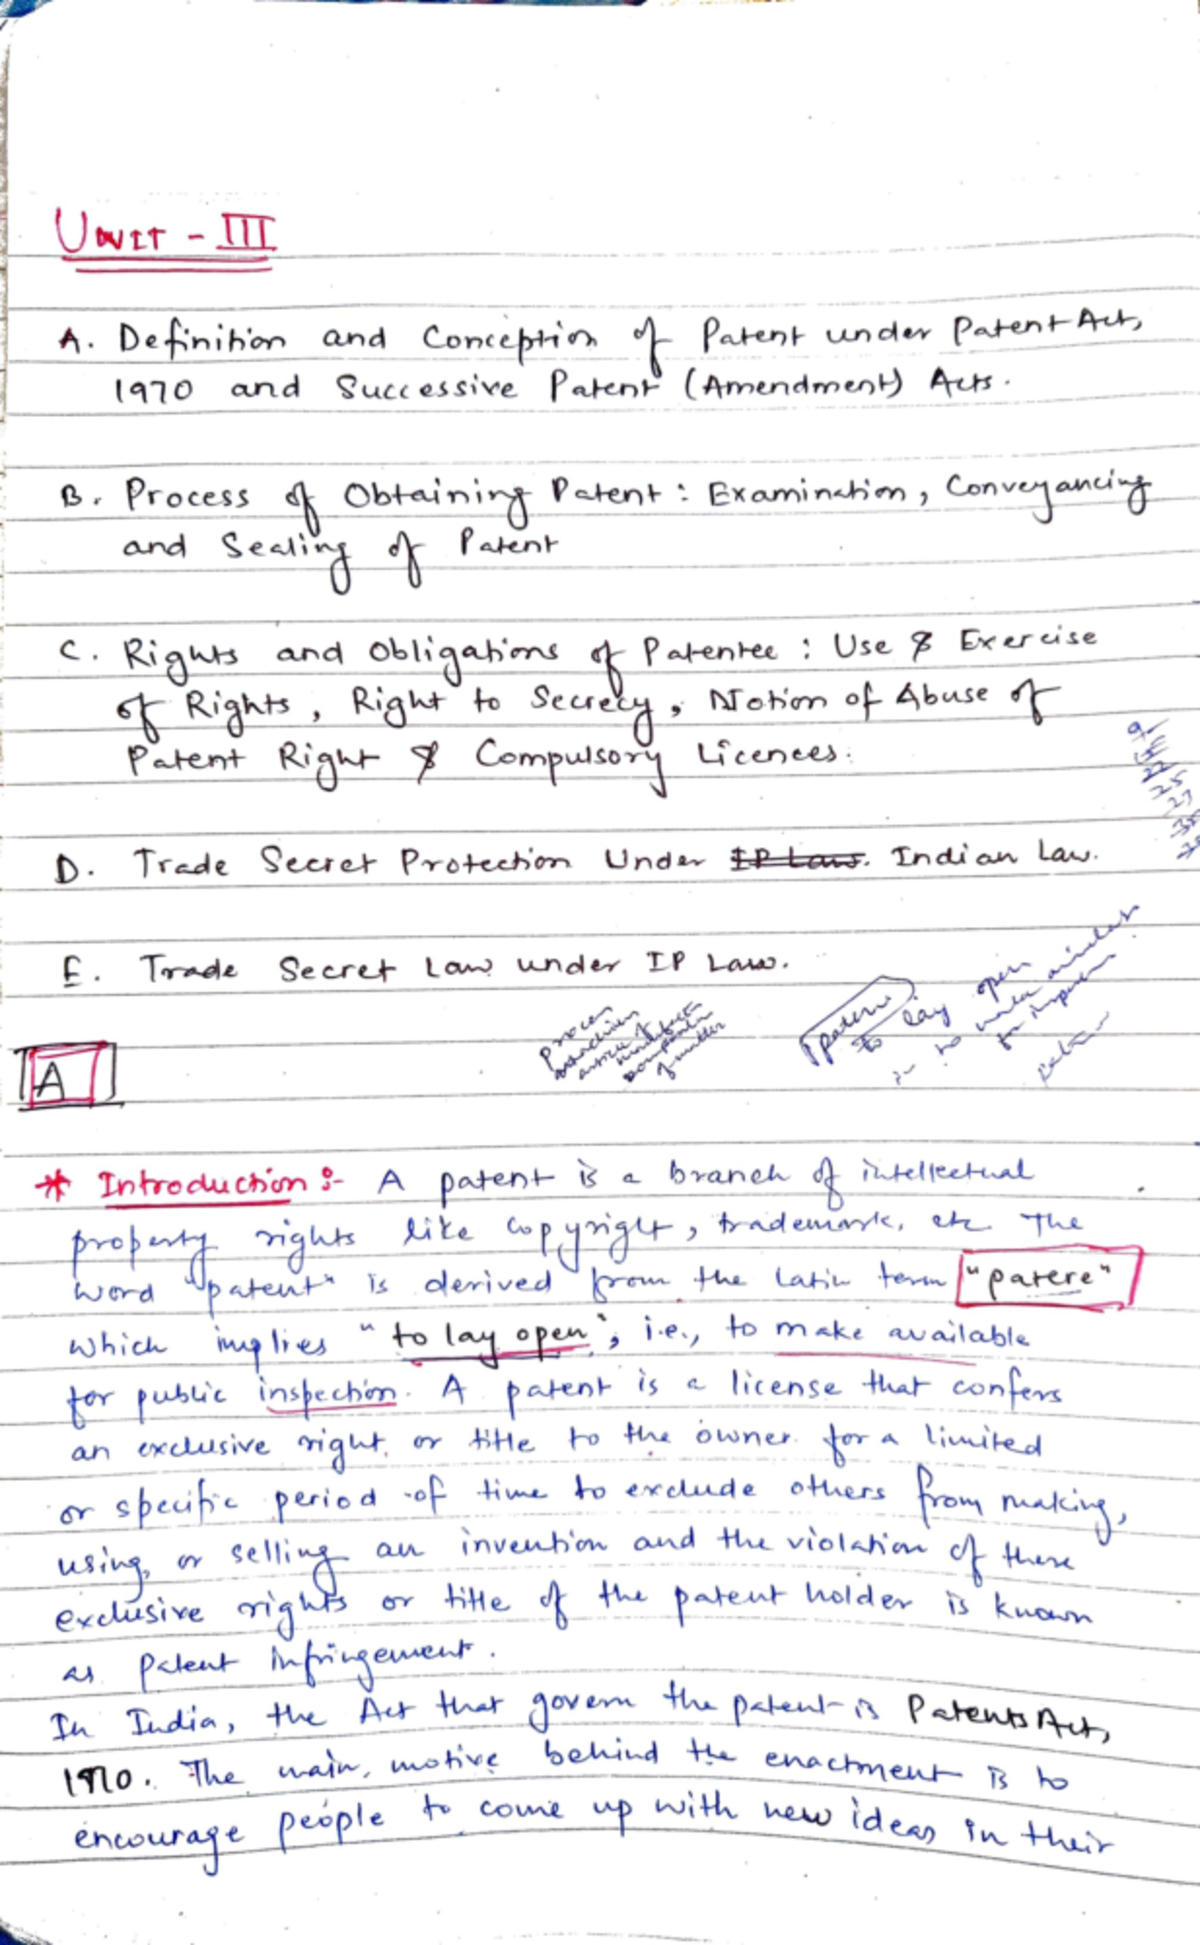 UNIT - III
A. Definition and Conception of Patent under Patent Act,
1970 and Successive Patent (Amendment) Acts.
B. Process of Obtaining Patent : Examination, Conveyancing
and Sealing of Patent
C. Rights and Obligations of Patentee : Use & Exercise
of Rights, Right to Secrecy, Notion of Abuse of
Patent Right & Compulsory Licences.
D. Trade Secret Protection Under IP Law. Indian Law.
E. Trade Secret Law under IP Law.
patere
to lay open
process
of matter
A
* Introduction :- A patent is a branch of intellectual
property rights like copyright, trademark, etc. The
word "patent" is derived from the Latin term "patere"
which implies "to lay open", i.e., to make available
for public inspection. A patent is a license that confers
an exclusive right, or title to the owner for a limited
or specific period of time to exclude others from making,
using, or selling an invention and the violation of these
exclusive rights or title of the patent holder is known
as patent infringement.
In India, the Act that govern the patent is Patents Act,
1970. The main, motive behind the enactment is to
encourage people to come up with new ideas in their